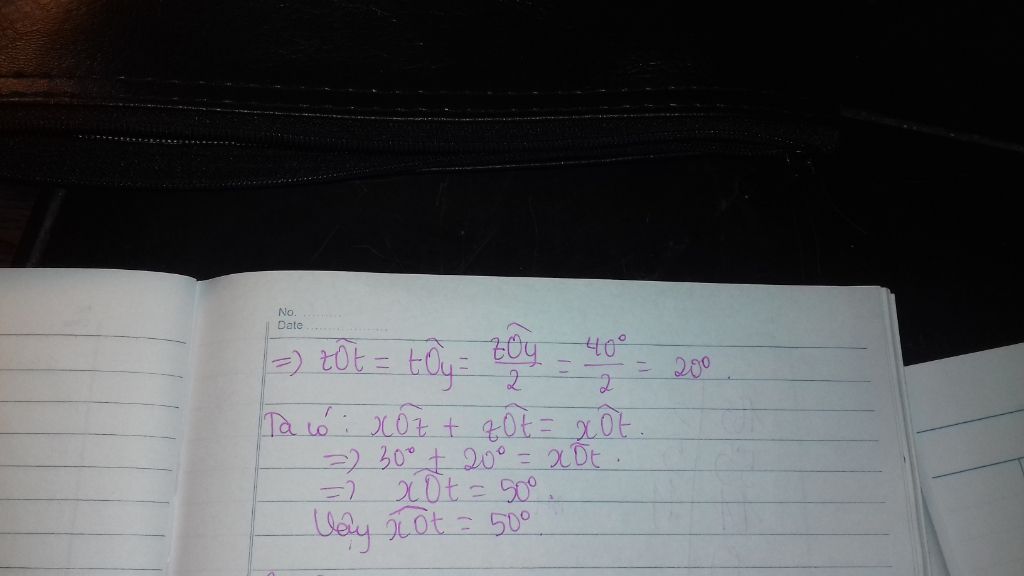 No. ............
Date ....................
=) zÔt = tÔy = zÔy/2 = 40°/2 = 20°.
Ta có: xÔz + zÔt = xÔt.
=) 30° + 20° = xÔt.
=) xÔt = 50°.
Vậy xÔt = 50°